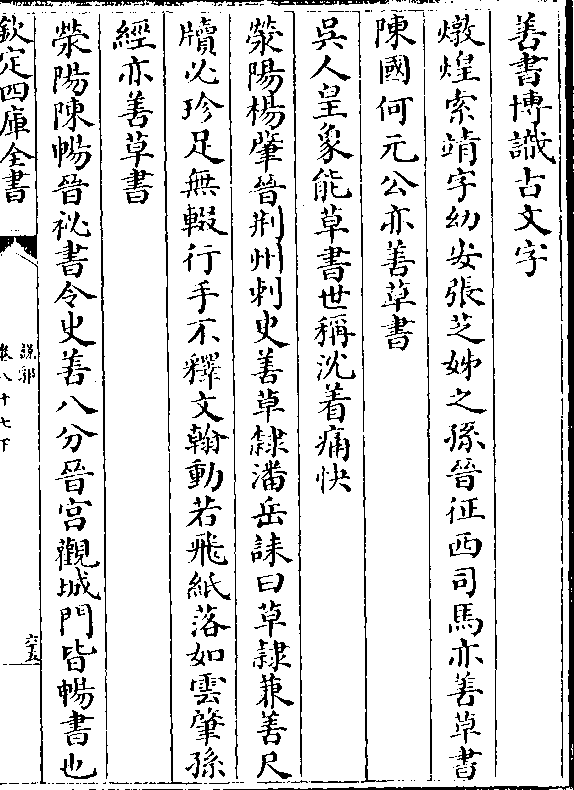 善書博識古文字
燉煌索靖字幼安張芝姊之孫晉征西司馬亦善草書
陳國何元公亦善草書
吳人皇象能草書世稱沈着痛快
滎陽楊肇晉荆州刺史善草隸潘岳誄曰草隸兼善尺
牘必珍足無輟行手不釋文翰動若飛紙落如雲肇孫
經亦善草書
滎陽陳暢晉祕書令史善八分晉宫觀城門皆暢書也
欽定四庫全書
說郛
卷八十七下
六五